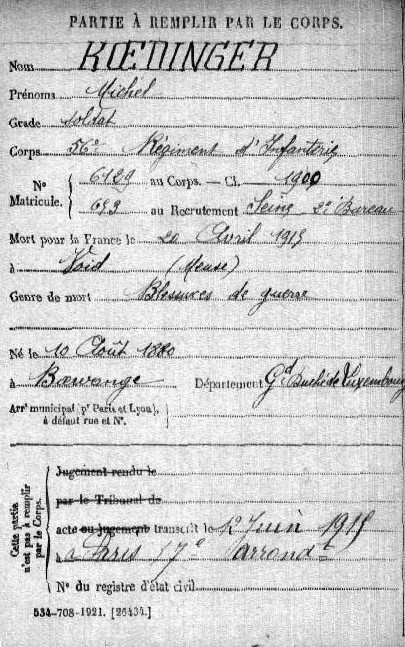 PARTIE À REMPLIR PAR LE CORPS.
Nom KŒDINGER
Prénoms Michel
Grade soldat
Corps 56e Régiment d'Infanterie
N° Matricule. { 6129 au Corps. — Cl. 1900
689 au Recrutement Seine 2e Bureau
Mort pour la France le 20 Avril 1915
à Void (Meuse)
Genre de mort Blessures de guerre
Né le 10 Août 1880
à Bœvange Département Gd Duché de Luxembourg
Arrt municipal (pr Paris et Lyon), à défaut rue et N°.
Cette partie n'est pas à remplir par le Corps.
Jugement rendu le
par le Tribunal de
acte ou jugement transcrit le 12 Juin 1915
à Paris 17e arrondt
N° du registre d'état civil
534-708-1921. [26434.]